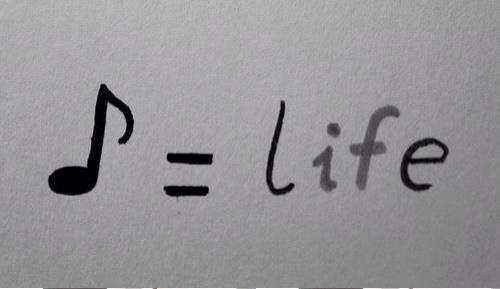 ♪ = life